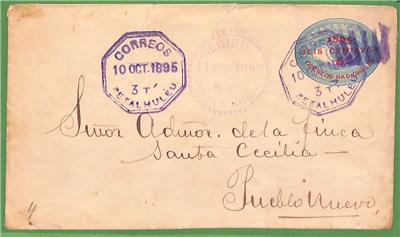 CORREOS
10 OCT. 1895
3 T
RETALHULEU
1895
SEIS CENTAVOS
CORREOS NACIONALES
10
3 T
RETALHULEU
Señor Admor. de la finca
Santa Cecilia —
Pueblo Nuevo.
4